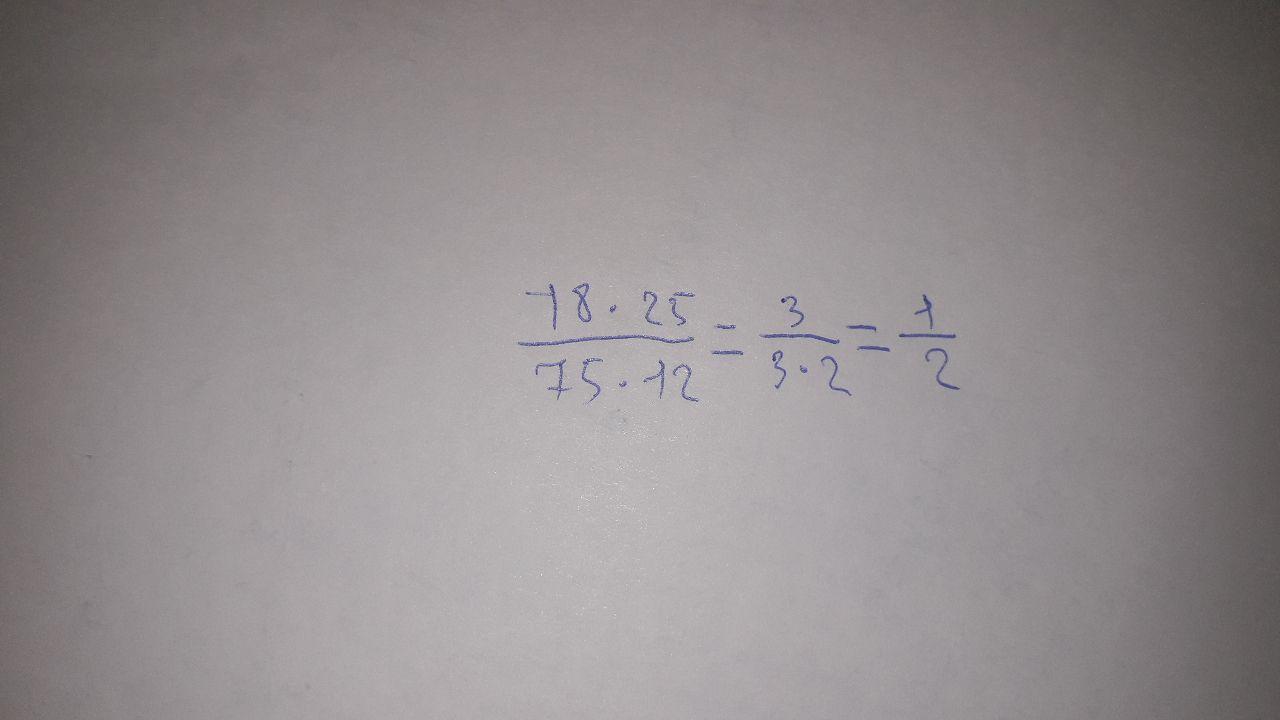 18 · 25 / 75 · 12 = 3 / 3 · 2 = 1 / 2